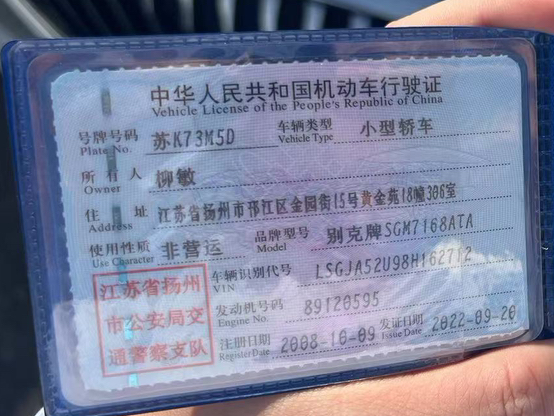 中华人民共和国机动车行驶证
Vehicle License of the People's Republic of China
号牌号码 苏K73M5D 车辆类型 小型轿车
Plate No. Vehicle Type
所有人 柳敏
Owner
住址 江苏省扬州市邗江区金园街15号黄金苑18幢306室
Address
使用性质 非营运 品牌型号 别克牌SGM7168ATA
Use Character Model
江苏省扬州 车辆识别代号 LSGJA52U98H162712
VIN
市公安局交 发动机号码 89120595
Engine No.
通警察支队 注册日期 2008-10-09 发证日期 2022-09-20
Register Date Issue Date